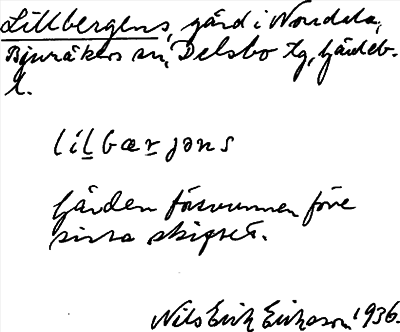 Lillbergens, gård i Norrdala,
Bjuråkers sn, Delsbo tg, Gävleb.
l.
lilbærjəns
Gården försvunnen före
sista skiftet.
Nils Erik Eriksson 1936.